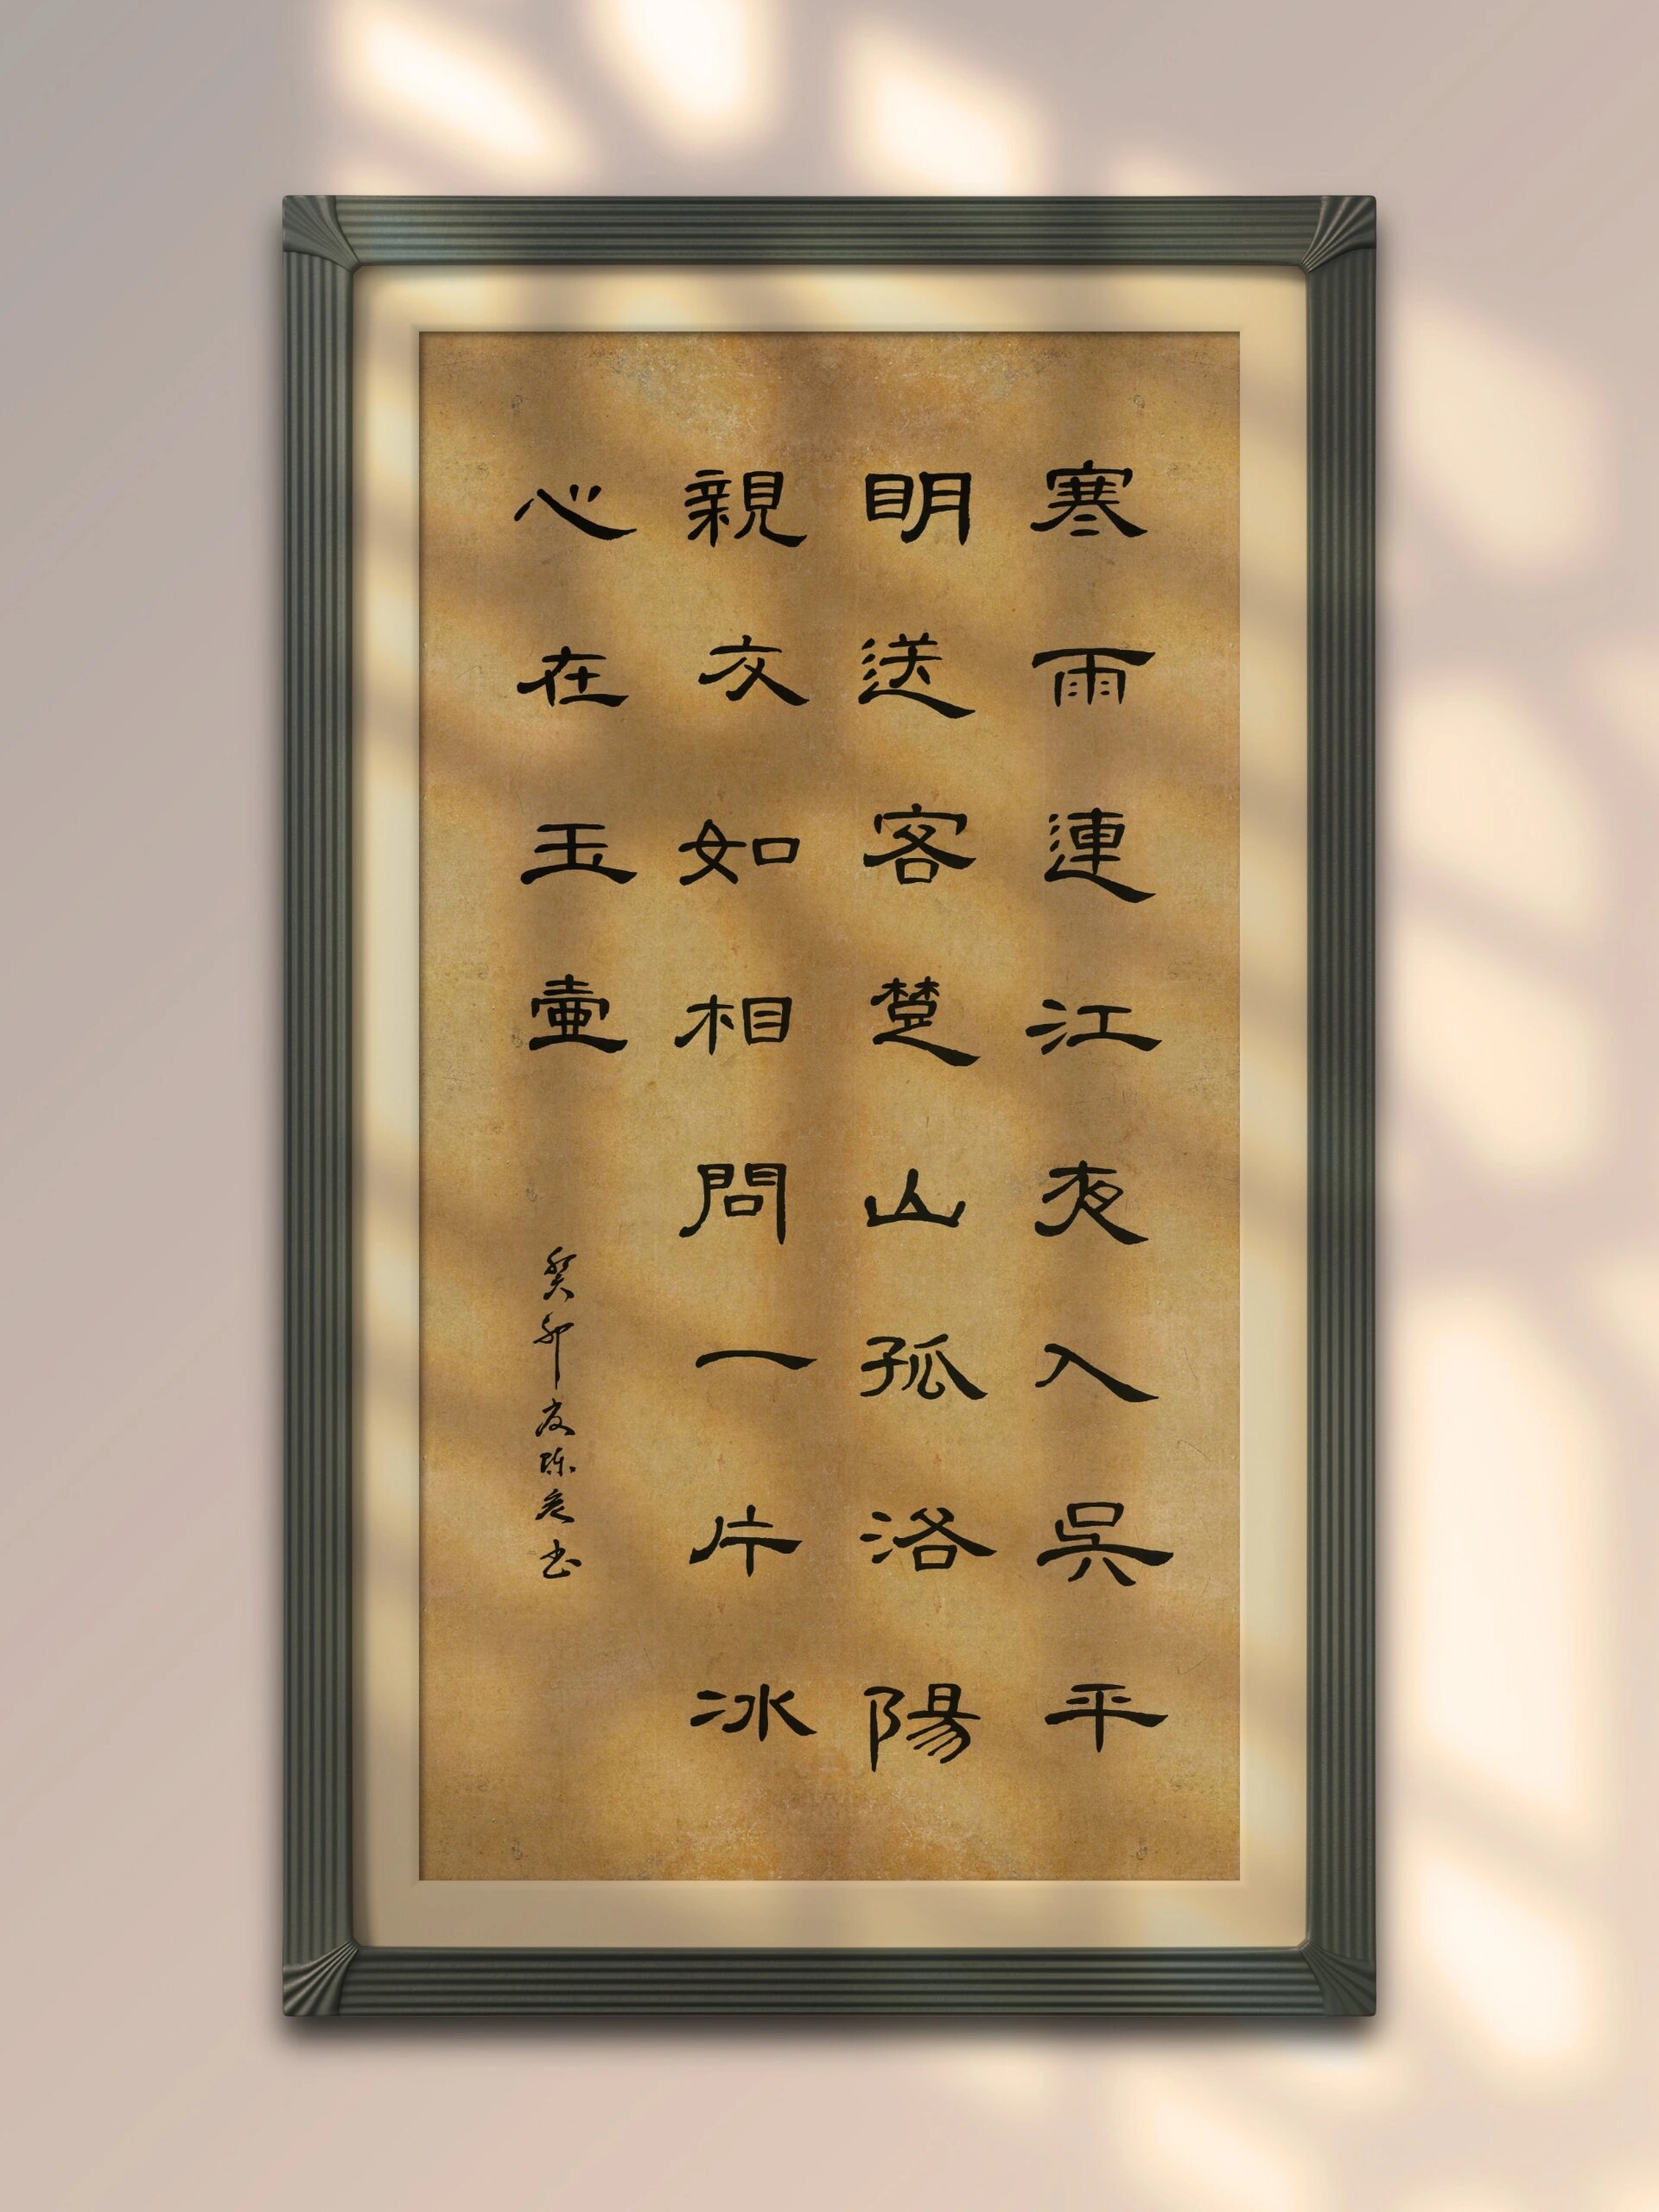 寒雨連江夜入吳平
明送客楚山孤洛陽
親友如相問一片冰
心在玉壺
癸卯夏陈彦书